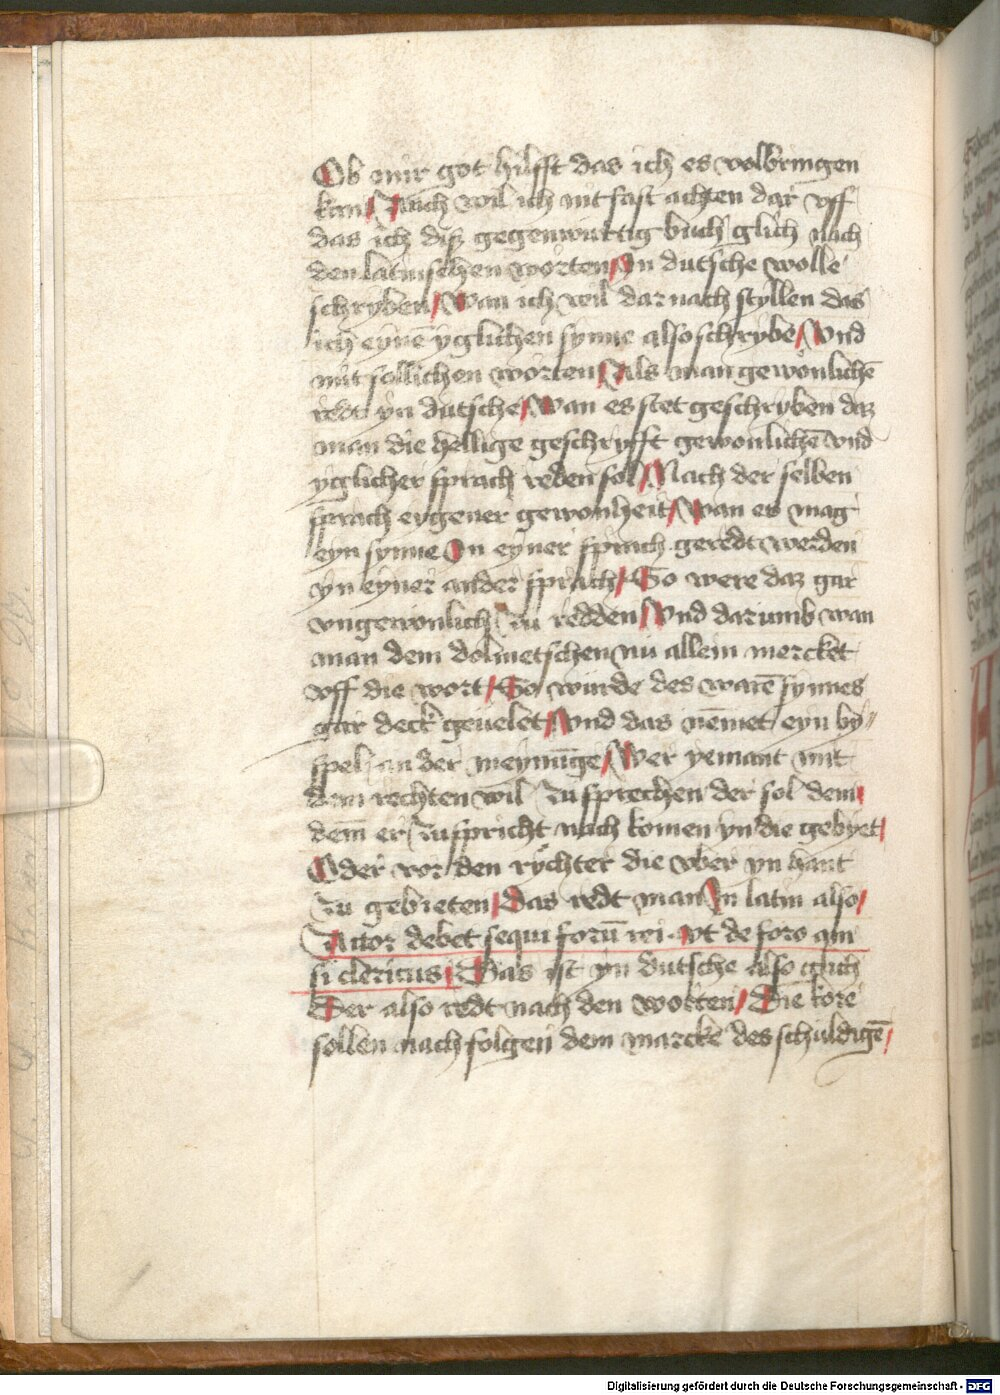 Ob mir got hilfft das ich es volbringen
kan / Auch wil ich nit fast achten dar vff
das ich disz gegenwurtig buch glich nach
den latinschen worten / In dutsche wolle
schryben / Wan ich wil dar nach styllen das
ich eynē yglichen synne also schrybe / Vnd
mit sollichen worten / Als man gewonlichē
redt yn dutsche / Wan es stet geschryben daz
man die hellige geschryfft gewonlichē vnd
yglicher sprach reden sol / Nach der selben
sprach eygener gewonheit / Wan es mag
eyn synne In eyner sprach geredt werden
yn eyner ander sprach / So were daz gar
vngewonlich zu redden / Vnd darumb wan
man dem dolmetschen nu allein mercket
vff die wort / So wurde des warē synnes
gar deck geuelet / Vnd das nēmet eyn by
spel an der meynūge / Wer yemant mit
dem rechten wil zu sprechen der sol dem /
dem er zu spricht nach komen yn die gebyet /
Oder vor den rychter die vber yn hant
zu gebieten / Das redt man In latin also /
Actor debet sequi forū rei · vt de foro qm̄
si clericus / Das ist yn dutsche also glich
Der also redt nach den worten / Die kore
sollen nach folgen dem marcke des schuldigē /
Digitalisierung gefördert durch die Deutsche Forschungsgemeinschaft - DFG